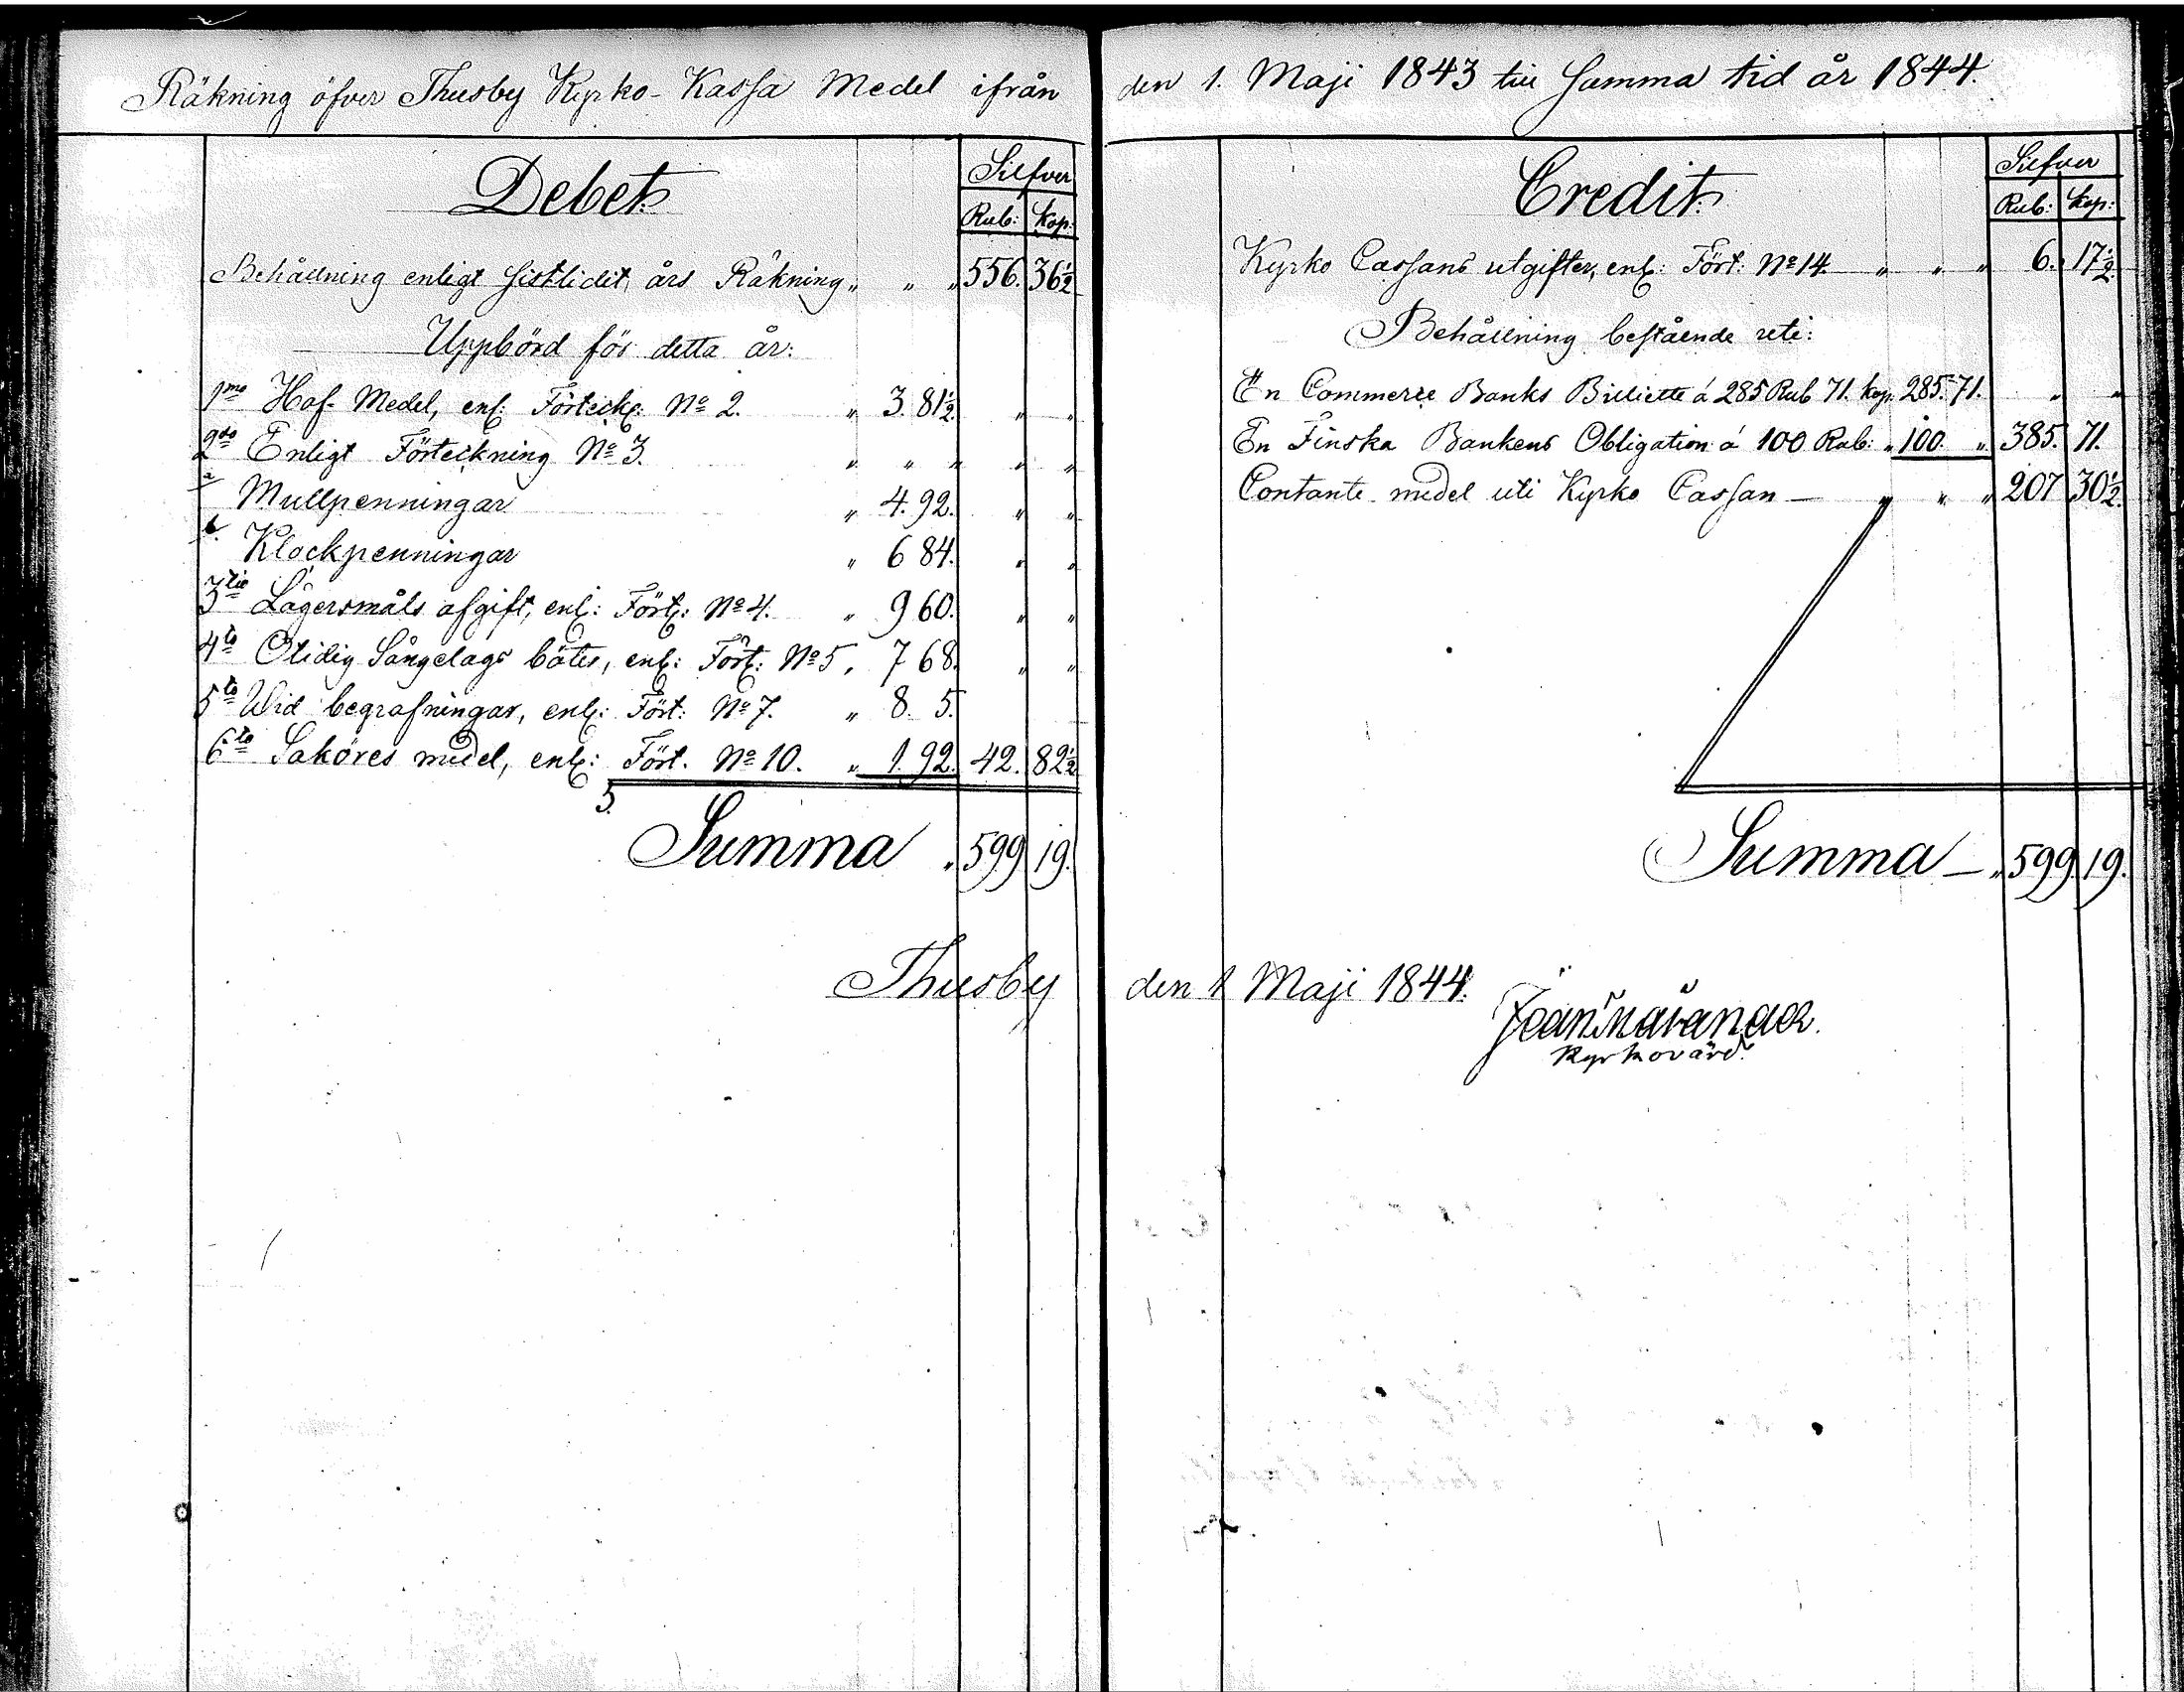 Räkning öfver Thusby Kyrko-Kassa Medel ifrån den 1. Maji 1843 till samma tid år 1844.
Debet.
Silfver
Rub: Kop:
Behållning enligt sistlidit års Räkning „ „ „ 556. 36½
Uppbörd för detta år:
1mo Haf-Medel, enl: Förteckg: No 2. „ 3. 81½ „ „
2do Enligt Förteckning No 3. „ „ „ „ „
a Mullpenningar „ 4. 92. „ „
b. Klockpenningar „ 6 84. „ „
3tio Lägersmåls afgift, enl: Fört: No 4. „ 9 60. „ „
4to Otidig Sängelags böter, enl: Fört: No 5 „ 7 68. „ „
5to Wid begrafningar, enl: Fört: No 7. „ 8. 5.
6to Saköres medel, enl: Fört. No 10. „ 1. 92. 42. 82½
Summa „ 599 19.
Credit.
Silfver
Rub: Kop:
Kyrko Cassans utgifter, enl: Fört: No 14. „ „ „ 6. 17½
Behållning bestående uti:
En Commerce Banks Billiette á 285 Rub 71. kop. 285. 71. „ „
En Finska Bankens Obligation á 100 Rub: „ 100. „ 385. 71.
Contante medel uti Kyrko Cassan — „ „ „ 207 30½
Summa — „ 599. 19.
Thusby den 1 Maji 1844.
Kyrkovärd